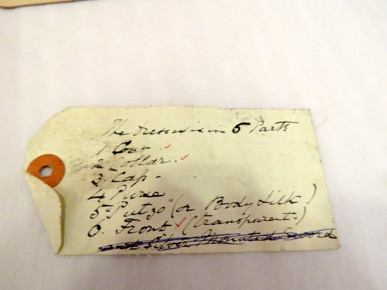 The dress is in 6 Parts
1 Coat
2 Collar
3 Cap
4 Purse
5 (or Body Silk)
6. Front (transparent.)
and Silver Mounted Sword